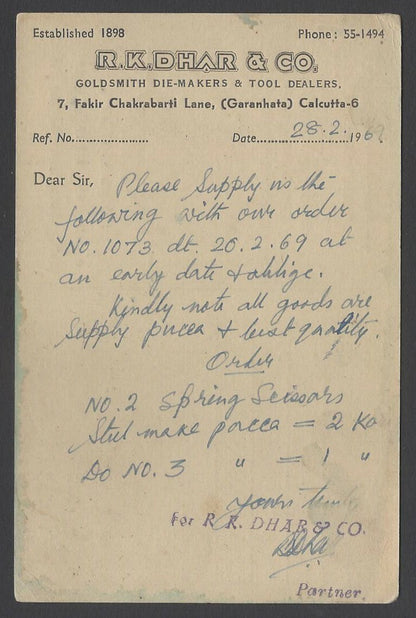 Established 1898 Phone: 55-1494
R.K.DHAR & CO.
GOLDSMITH DIE-MAKERS & TOOL DEALERS,
7, Fakir Chakrabarti Lane, (Garanhata) Calcutta-6
Ref. No..................... Date 28.2. 1969
Dear Sir, Please Supply us the
following with our order
No. 1073 dt. 20.2.69 at
an early date & oblige.
Kindly note all goods are
Supply pucca & best quality.
Order
No. 2 Spring Scissors
Stul make pucca = 2
Do No. 3 " = 1 "
Yours
For R. K. DHAR & CO.
Partner